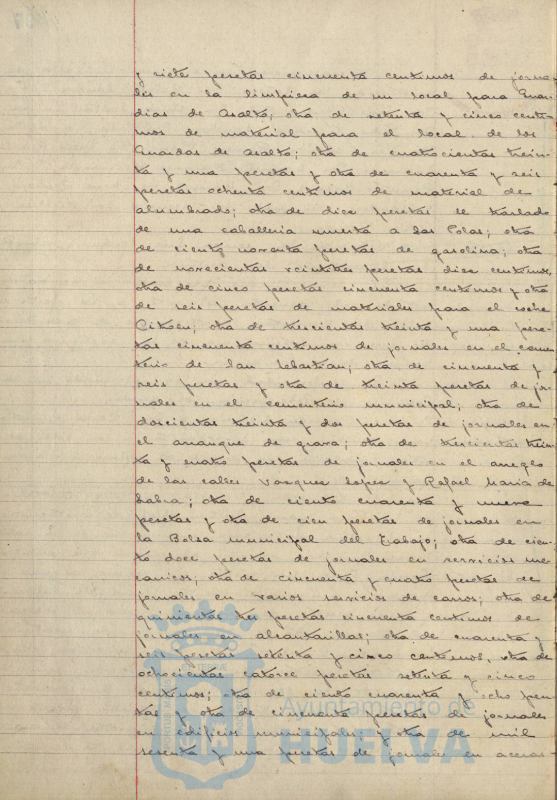 y siete pesetas cincuenta centimos de jorna-
les en la limpieza de un local para Guar-
dias de Asalto; otra de setenta y cinco centi-
mos de material para el local de los
Guardias de Asalto; otra de cuatrocientas trein-
ta y una pesetas y otra de cuarenta y seis
pesetas ochenta centimos de material de
alumbrado; otra de diez pesetas de traslado
de una caballeria muerta a Las Polas; otra
de ciento noventa pesetas de gasolina; otra
de novecientas veintitres pesetas diez centimos,
otra de cinco pesetas cincuenta centimos y otra
de seis pesetas de materiales para el coche
Citröen; otra de trescientas treinta y una pese-
tas cincuenta centimos de jornales en el cemen-
terio de San Sebastian; otra de cincuenta y
seis pesetas y otra de treinta pesetas de jor-
nales en el cementerio municipal; otra de
doscientas treinta y dos pesetas de jornales en
el arranque de grava; otra de trescientas trein-
ta y cuatro pesetas de jornales en el arreglo
de las calles Vazquez Lopez y Rafael Maria de
Labra; otra de ciento cuarenta y nueve
pesetas y otra de cien pesetas de jornales en
la Bolsa municipal del Trabajo; otra de cien-
to doce pesetas de jornales en servicios me-
canicos; otra de cincuenta y cuatro pesetas de
jornales en varios servicios de carros; otra de
quinientas tres pesetas cincuenta centimos de
jornales en alcantarillas; otra de cuarenta y
seis pesetas setenta y cinco centimos, otra de
ochocientas catorce pesetas setenta y cinco
centimos; otra de ciento cuarenta y ocho pese-
tas y otra de cincuenta pesetas de jornales
en edificios municipales; y otra de mil
sesenta y una pesetas de jornales en aceras
Ayuntamiento de
HUELVA